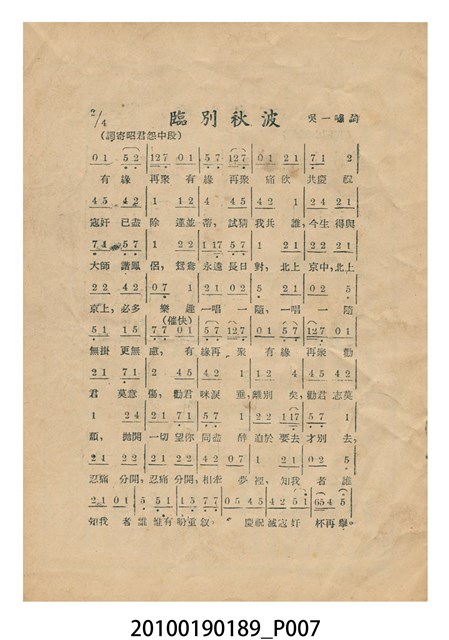 2/4
臨別秋波
吳一嘯詞
(譜寄昭君怨中段)
0 1 5 2 127 0 1 5 7 127 0 1 2 1 7 1 2
有緣再聚有緣再聚痛飲共慶祝
4 5 4 2 1 1 2 4 5 4 5 4 2 1 1 2 4 2 1
已盡除蓮並蒂,試猜我共誰,今生得與
7 1 5 7 1 2 2 117 5 7 1 2 1 2 2 2 1
大師諧鳳侶,鴛鴦永遠長日對,北上京中,北上
2 2 4 2 0 7 1 2 1 0 2 5 2 1 0 2 5
京上,必多樂趣一唱一隨,一唱一隨
(催快)
5 1 1 5 7 7 0 1 5 7 127 0 1 5 7 127 0 1
無掛更無慮,有緣再聚有緣再聚勸
7 1 5 7 2 4 5 4 2 1 1 2 1 4 5 4 2
君莫意傷,勸君咪淚垂,離別矣,勸君志莫
1 2 4 2 1 7 1 5 7 1 2 2 117 5 7 1
頹,拋開一切望你同盡醉迫於要去才別去,
2 1 2 2 2 1 2 2 4 2 0 7 1 2 1 0 2 5
忍痛分開,忍痛分開相牽夢裡,知我者誰
2 1 0 1 5 5 1 1 5 7 7 0 5 4 5 4 2 5 1 654 5
知我者誰惟有盼重敘,慶祝誠 杯再舉。
20100190189_P007